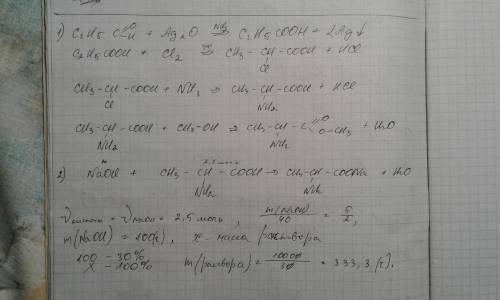 1) C₂H₅ C=O H + Ag₂O NH₃⇒ C₂H₅COOH + 2Ag↓
C₂H₅COOH + Cl₂ ⇒ CH₃ - CH - COOH + HCl
Cl
CH₃ - CH - COOH + NH₃ ⇒ CH₃ - CH - COOH + HCl
Cl NH₂
CH₃ - CH - COOH + CH₃-OH ⇒ CH₃ - CH - C=O O-CH₃ + H₂O
NH₂ NH₂
2) NaOH + CH₃ - CH - COOH → CH₃ - CH - COONa + H₂O
NH₂ NH₂
= νNaOH = 2,5 моль , m(NaOH)/40 = 5/2,
m(NaOH) = 100(г), x - масса раствора
100 - 30%
x - 100% m(раствора) = 10000/30 = 333,3 (г).